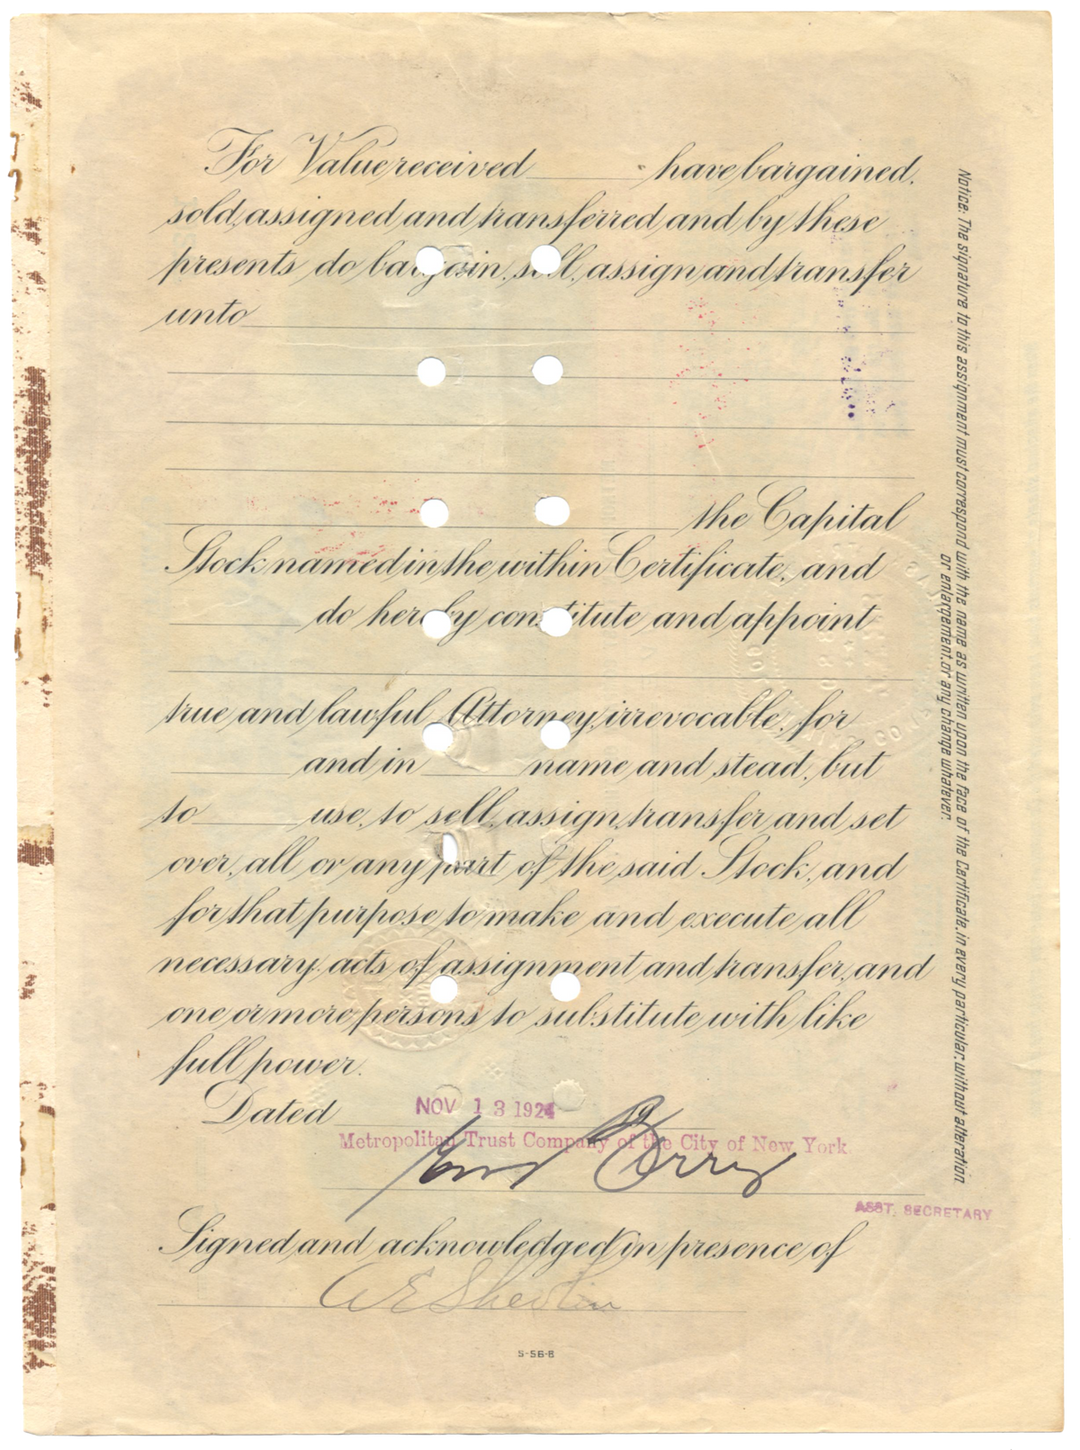 For Value received have bargained,
sold, assigned and transferred and by these
presents do bargain, sell, assign and transfer
unto
the Capital
Stock named in the within Certificate, and
do hereby constitute and appoint
true and lawful Attorney, irrevocable, for
and in name and stead, but
to use, to sell, assign, transfer and set
over, all or any part of the said Stock, and
for that purpose to make and execute all
necessary acts of assignment and transfer, and
one or more persons to substitute with like
full power.
Dated NOV 13 1924
Metropolitan Trust Company of the City of New York.
ASST. SECRETARY
Signed and acknowledged in presence of
S-56-8
Notice: The signature to this assignment must correspond with the name as written upon the face of the Certificate, in every particular, without alteration
or enlargement, or any change whatever.